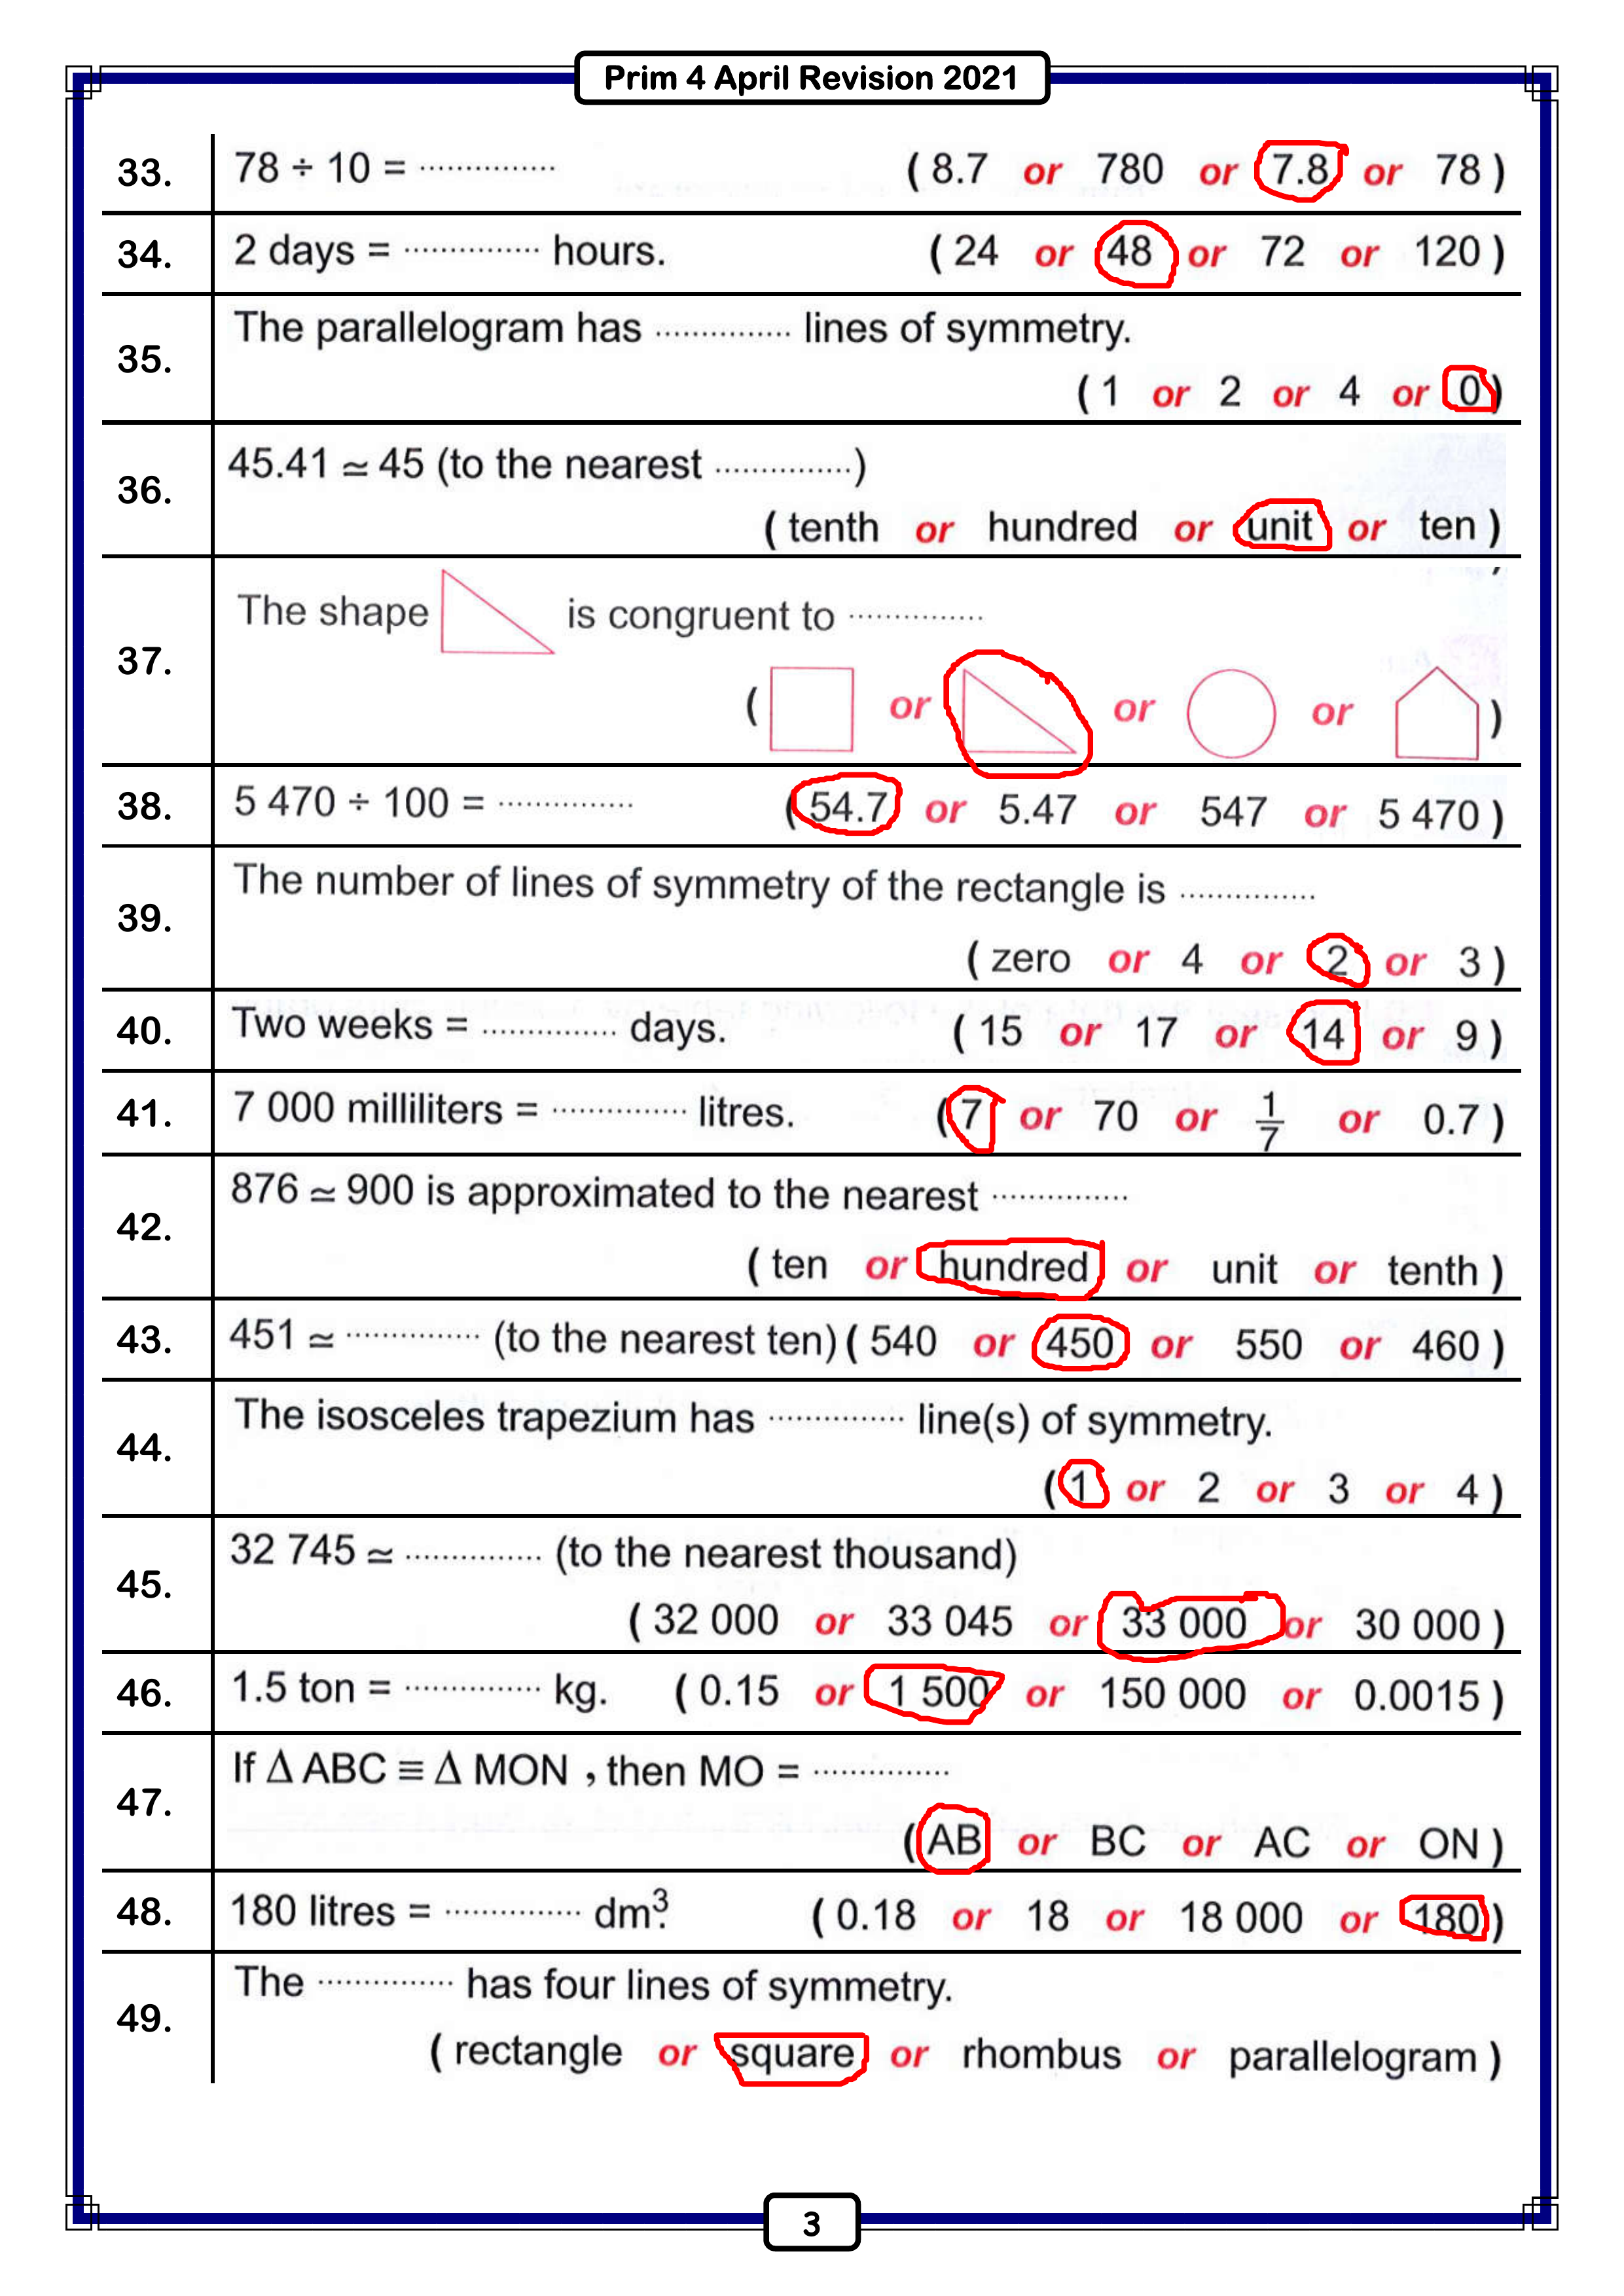 Prim 4 April Revision 2021
33. 78 ÷ 10 = ............... ( 8.7 or 780 or 7.8 or 78 )
34. 2 days = ............... hours. ( 24 or 48 or 72 or 120 )
35. The parallelogram has ............... lines of symmetry.
( 1 or 2 or 4 or 0 )
36. 45.41 ≃ 45 (to the nearest ...............)
( tenth or hundred or unit or ten )
37. The shape is congruent to ...............
( or or or )
38. 5 470 ÷ 100 = ............... ( 54.7 or 5.47 or 547 or 5 470 )
39. The number of lines of symmetry of the rectangle is ...............
( zero or 4 or 2 or 3 )
40. Two weeks = ............... days. ( 15 or 17 or 14 or 9 )
41. 7 000 milliliters = ............... litres. ( 7 or 70 or 1/7 or 0.7 )
42. 876 ≃ 900 is approximated to the nearest ...............
( ten or hundred or unit or tenth )
43. 451 ≃ ............... (to the nearest ten) ( 540 or 450 or 550 or 460 )
44. The isosceles trapezium has ............... line(s) of symmetry.
( 1 or 2 or 3 or 4 )
45. 32 745 ≃ ............... (to the nearest thousand)
( 32 000 or 33 045 or 33 000 or 30 000 )
46. 1.5 ton = ............... kg. ( 0.15 or 1 500 or 150 000 or 0.0015 )
47. If Δ ABC ≡ Δ MON , then MO = ...............
( AB or BC or AC or ON )
48. 180 litres = ............... dm³. ( 0.18 or 18 or 18 000 or 180 )
49. The ............... has four lines of symmetry.
( rectangle or square or rhombus or parallelogram )
3